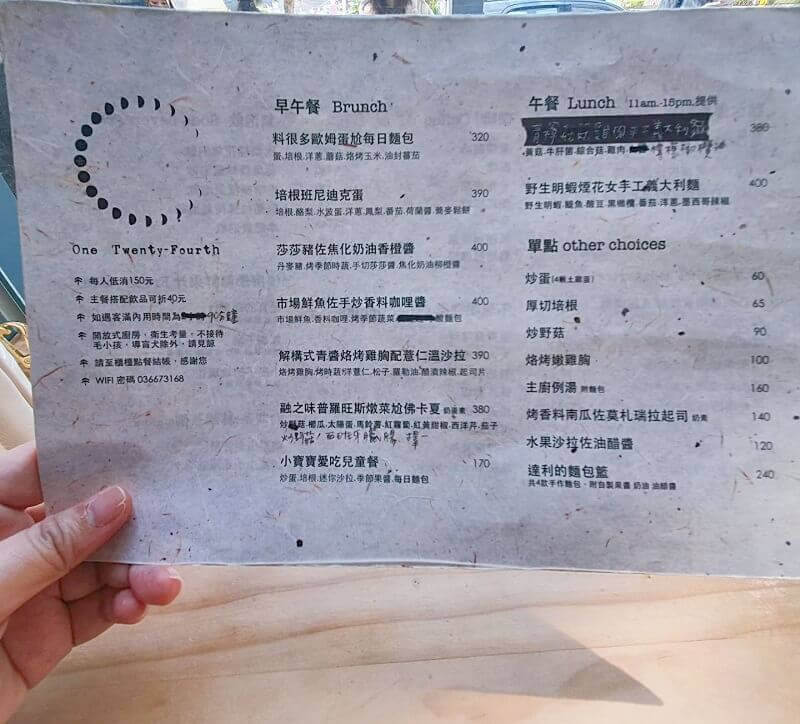 One Twenty-Fourth
每人低消150元
主餐搭配飲品可折40元
如遇客滿內用時間為 90分鐘
開放式廚房，衛生考量，不接待
毛小孩，導盲犬除外，請見諒
請至櫃檯點餐結帳，感謝您
WIFI 密碼 036673168
早午餐 Brunch
料很多歐姆蛋尬每日麵包 320
蛋.培根.洋蔥.蘑菇.烙烤玉米.油封蕃茄
培根班尼迪克蛋 390
培根.酪梨.水波蛋.洋蔥.鳳梨.番茄.荷蘭醬.蕎麥鬆餅
莎莎豬佐焦化奶油香橙醬 400
丹麥豬.烤季節時蔬.手切莎莎醬.焦化奶油柳橙醬
市場鮮魚佐手炒香料咖哩醬 400
市場鮮魚.香料咖哩.烤季節蔬菜 酸麵包
解構式青醬烙烤雞胸配薏仁溫沙拉 390
烙烤雞胸.烤時蔬.洋薏仁.松子.羅勒油.醋漬辣椒.起司片
融之味普羅旺斯燉菜尬佛卡夏 奶蛋素 380
炒 菇.櫛瓜.太陽蛋.馬鈴薯.紅蘿蔔.紅黃甜椒.西洋芹.茄子
炒野菇/西班牙臘腸 擇一
小寶寶愛吃兒童餐 170
炒蛋.培根.迷你沙拉.季節果醬.每日麵包
午餐 Lunch 11am.-15pm.提供
義大利 380
黃菇.牛肝菌.綜合菇.雞肉.
野生明蝦煙花女手工義大利麵 400
野生明蝦.鯷魚.酸豆.黑橄欖.番茄.洋蔥.墨西哥辣椒
單點 other choices
炒蛋(4顆土雞蛋) 60
厚切培根 65
炒野菇 90
烙烤嫩雞胸 100
主廚例湯 附麵包 160
烤香料南瓜佐莫札瑞拉起司 奶素 140
水果沙拉佐油醋醬 120
達利的麵包籃 240
共4款手作麵包、附自製果醬 奶油 油醋醬